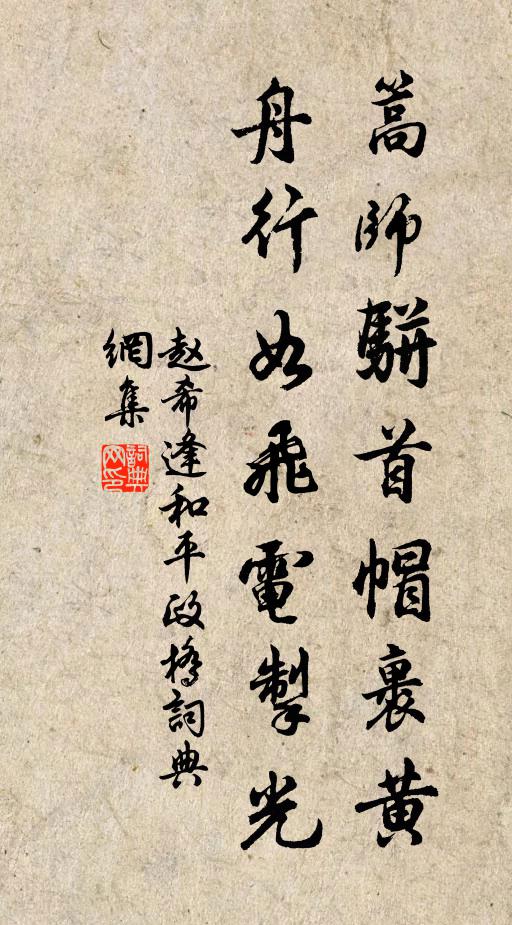 篙師駢首帽裹黃
舟行如飛電掣光
赵希逢和平政橋詞典
網集
詞典網印